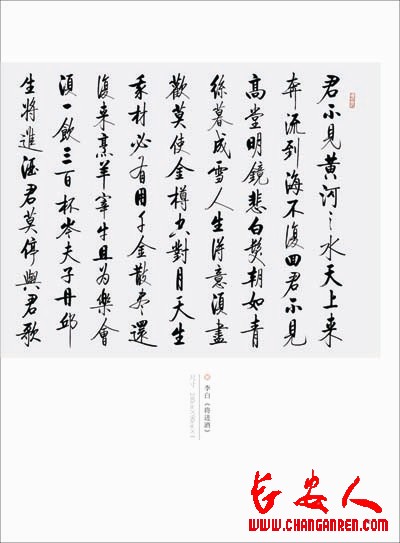 君不見黃河之水天上来
奔流到海不復回君不見
高堂明鏡悲白髮朝如青
絲暮成雪人生得意須盡
歡莫使金樽空對月天生
我材必有用千金散尽還
復来烹羊宰牛且為樂會
須一飲三百杯岑夫子丹邱
生將進酒君莫停與君歌
李白《将进酒》
尺寸
长安人
WWW.CHANGANREN.COM